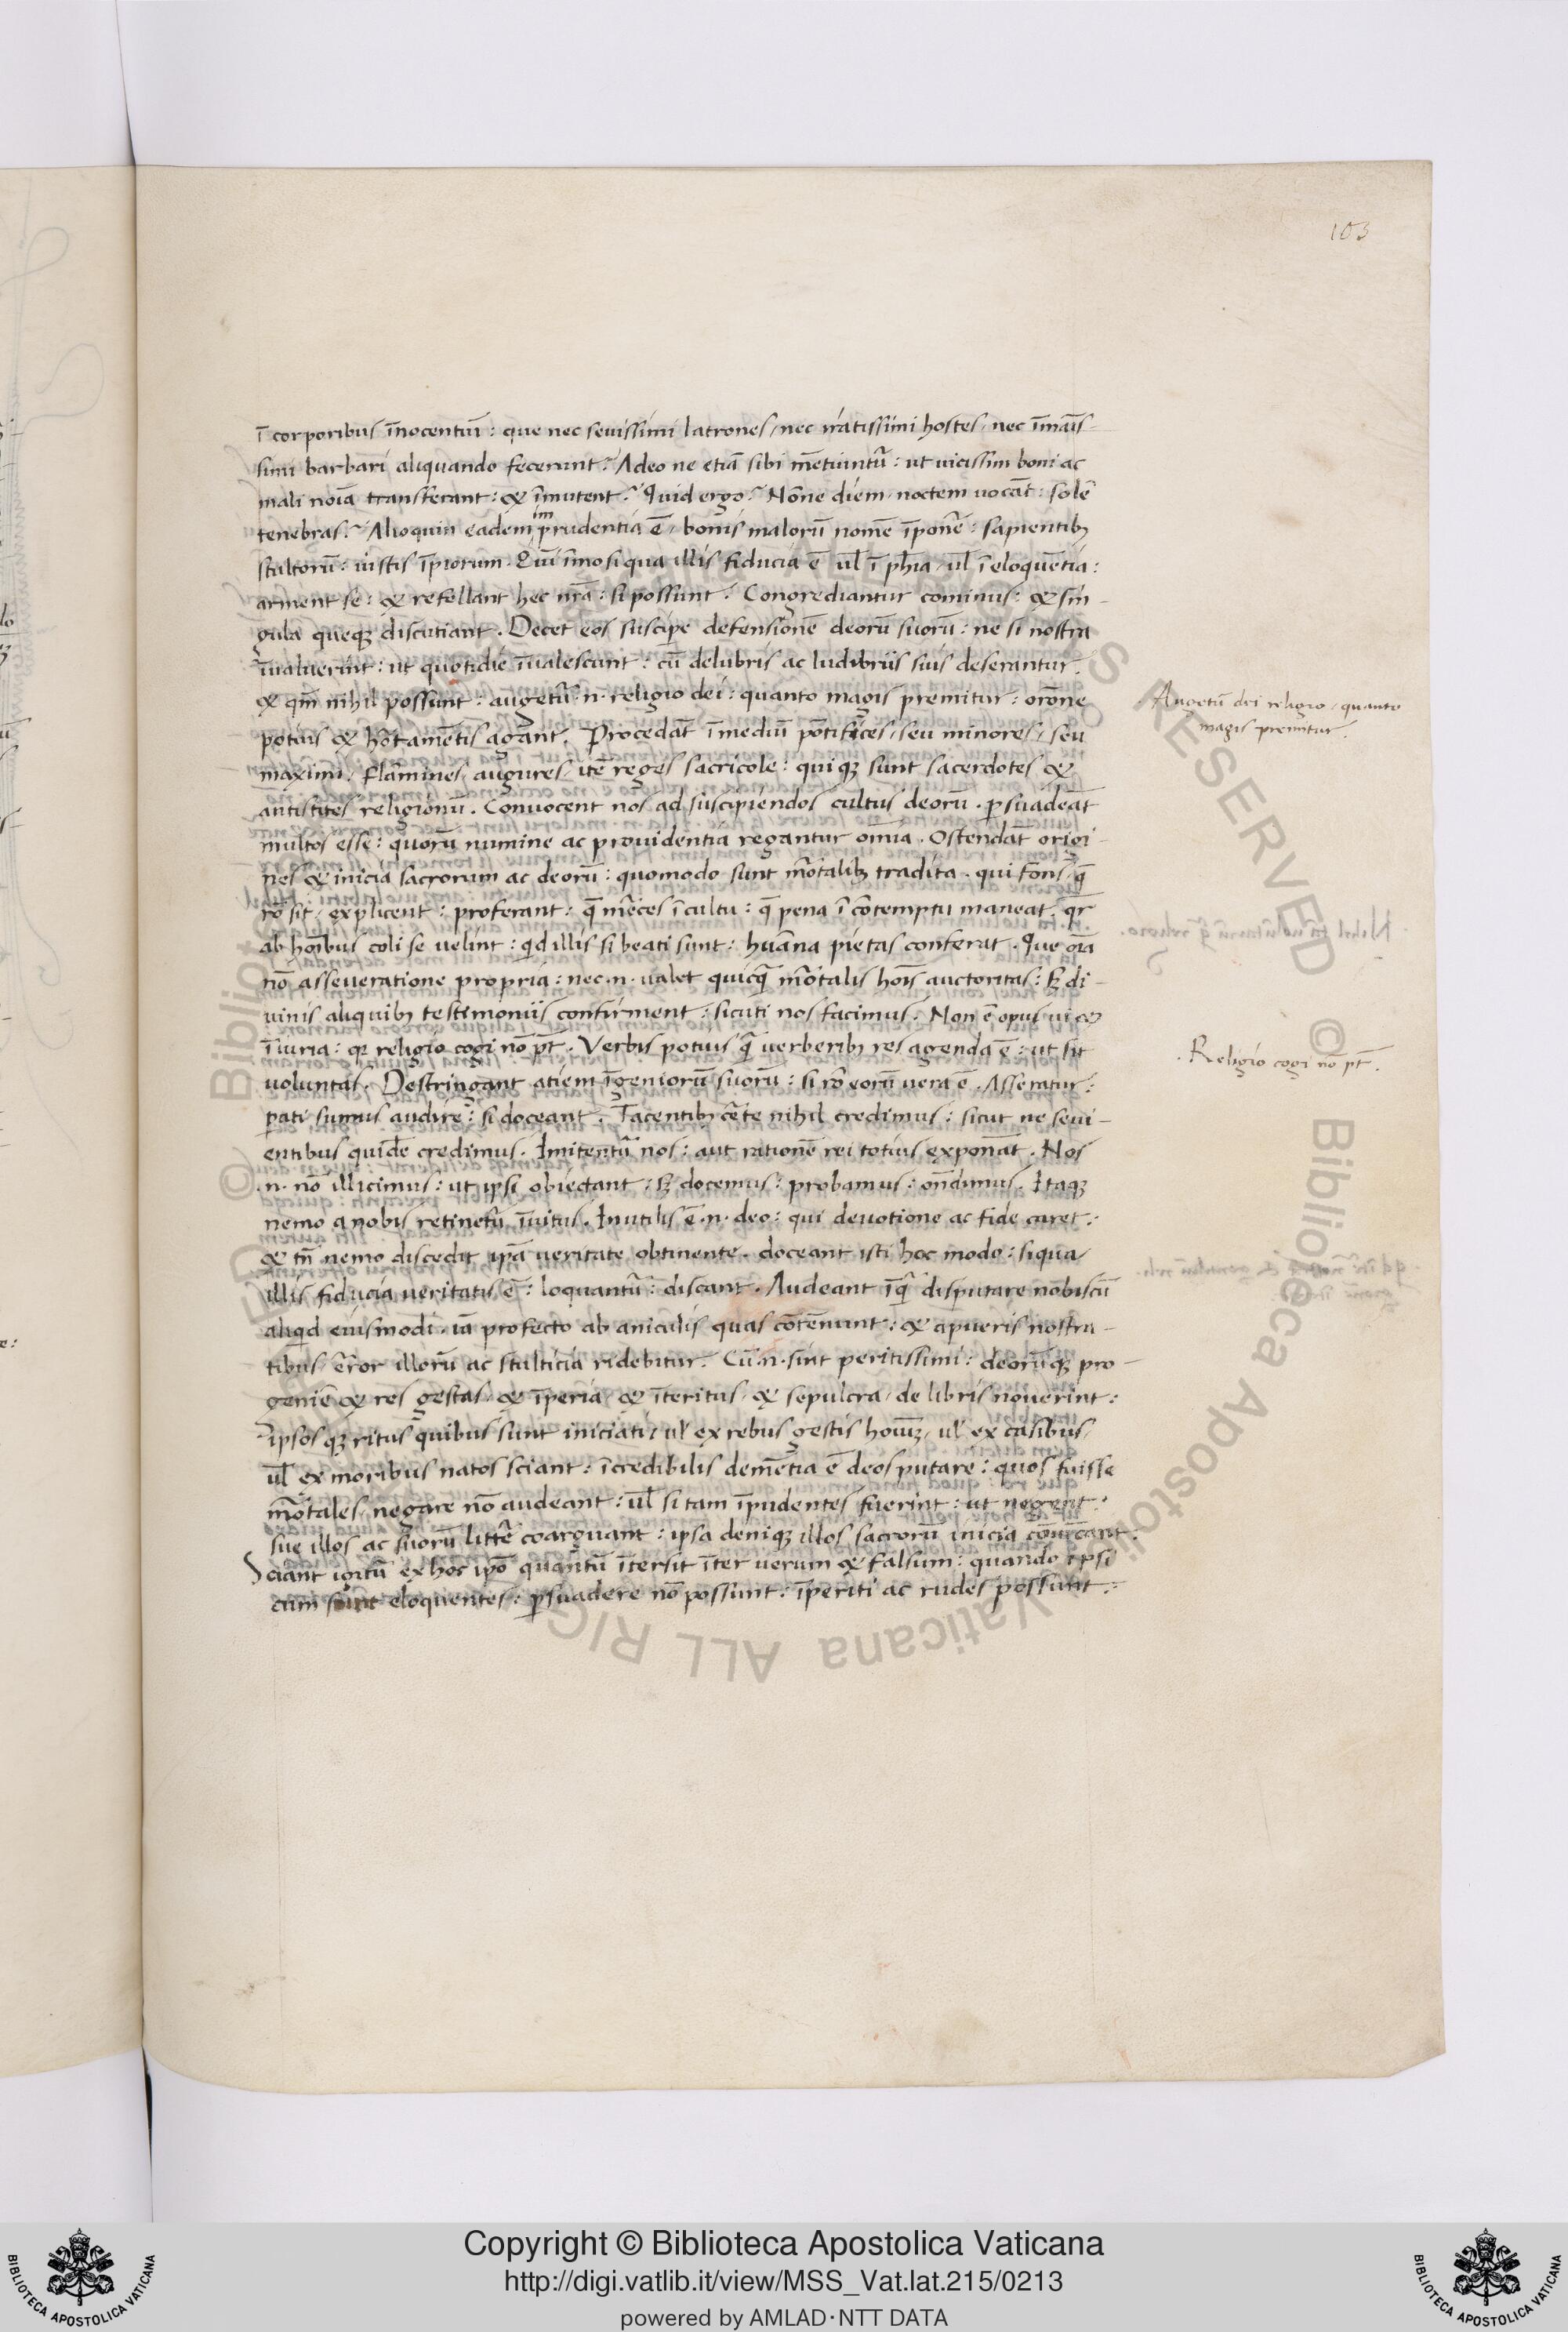 103
ī corporibus īnocentiū: que nec seuissimi latrones, nec iratissimi hostes, nec īmanis-
simi barbari aliquando fecerunt? Adeo ne etiā sibi mētiunt᷑: ut uicissim boni ac
mali noīa transferant: & īmutent? Quid ergo? Nōne diem, noctem uocāt: solē
tenebras? Alioquin eadem imprudentia ē, bonis malorū nomē īponē: sapientibꝫ
stultorū: iustis īpiorum. Quī īmo siqua illis fiducia ē ul̄ ī phīa, ul̄ ī eloquētia:
arment se: & refellant hec nr̄a: si possunt. Congrediantur cominus: & sin-
gula queqꝫ discutiant. Decet eos suscipe defensionē deorū suorū: ne si nostra
īualuerint: ut quotidie īualescunt: cū delubris ac ludibriis suis deserantur.
& qm̄ nihil possunt: augetur̄ .n. religio dei: quanto magis premitur: orōne
potius & hortamētis agant. Procedāt ī mediū pōtifices, seu minores, seu
maximi. flamines, augures, itē reges sacricole: quiqꝫ sunt sacerdotes &
antistites religionū. Conuocent nos ad suscipiendos cultus deorū. ꝑsuadeāt
multos esse: quorū numine ac prouidentia regantur omīa. Ostendāt origi-
nes & inicia sacrorum ac deorū: quomodo sunt mōrtalibꝫ tradita. qui fons, q̄
rō sit, explicent: proferant: q̄ mērces ī cultu: q̄ pena ī cōtemptu maneat. qr̄
ab hoībus coli se uelint: qd illis si beati sunt: huāna pietas conferat. Que oīa
nō asseueratione propria: nec .n. ualet quicq̄ mōrtalis hoīs auctoritas: sꝫ di-
uinis aliquibꝫ testimoniis confirment: sicuti nos facimus. Non ē opus ui &
īiuria: qꝛ religio cogi nō pt̄. Verbis potius q̄ uerberibꝫ res agenda ē: ut sit
uoluntas. Destringant atiem īgeniorū suorū: si rō eorū uera ē. Asseratur:
pati sumus audire: si doceant. Tacentibꝫ cēte nihil credimus: sicut ne seui-
entibus quidē credimus. Imitentur̄ nos: aut rationē rei totius exponāt. Nos
.n. nō illicimus: ut ipsi obiectant: sꝫ docemus: probamus: on̄dimus. Itaqꝫ
nemo a nobis retinetur̄ īuitus. Inutilis ē .n. deo: qui deuotione ac fide caret:
& tn̄ nemo discedit ipā ueritate obtinente. doceant isti hoc modo: siqua
illis fiducia ueritatis ē: loquantur̄: discant. Audeant īq̄ disputare nobiscū
aliqd eiusmodi. iā profecto ab aniculis quas cōtemnunt: & a pueris nostra-
tibus error illorū ac stulticia ridebitur. Cū .n. sint peritissimi: deorūqꝫ pro-
geniē & res gestas, & īperia, & īteritus, & sepulcra, de libris nouerint:
ipsosqꝫ ritus quibus sunt iniciati, ul̄ ex rebus gestis hoīuꝫ, ul̄ ex casibus,
ul̄ ex moribus natos sciant: īcredibilis demētia ē deos putare: quos fuisse
mōrtales, negare nō audeant: ul̄ si tam īpudentes fuerint: ut negent:
sue illos ac suorū littē coarguant: ipsa deniqꝫ illos sacrorū inicia cōuīcant.
Sciant igitur̄ ex hoc ipō quantū ītersit īter uerum & falsum: quando ipsi
cum sint eloquentes: ꝑsuadere nō possunt: īperiti ac rudes possunt:
Augetur̄ dei religio, quanto
magis premitur.
. Religio cogi nō pt̄.
Copyright © Biblioteca Apostolica Vaticana
http://digi.vatlib.it/view/MSS_Vat.lat.215/0213
powered by AMLAD·NTT DATA
BIBLIOTECA APOSTOLICA VATICANA
BIBLIOTECA APOSTOLICA VATICANA